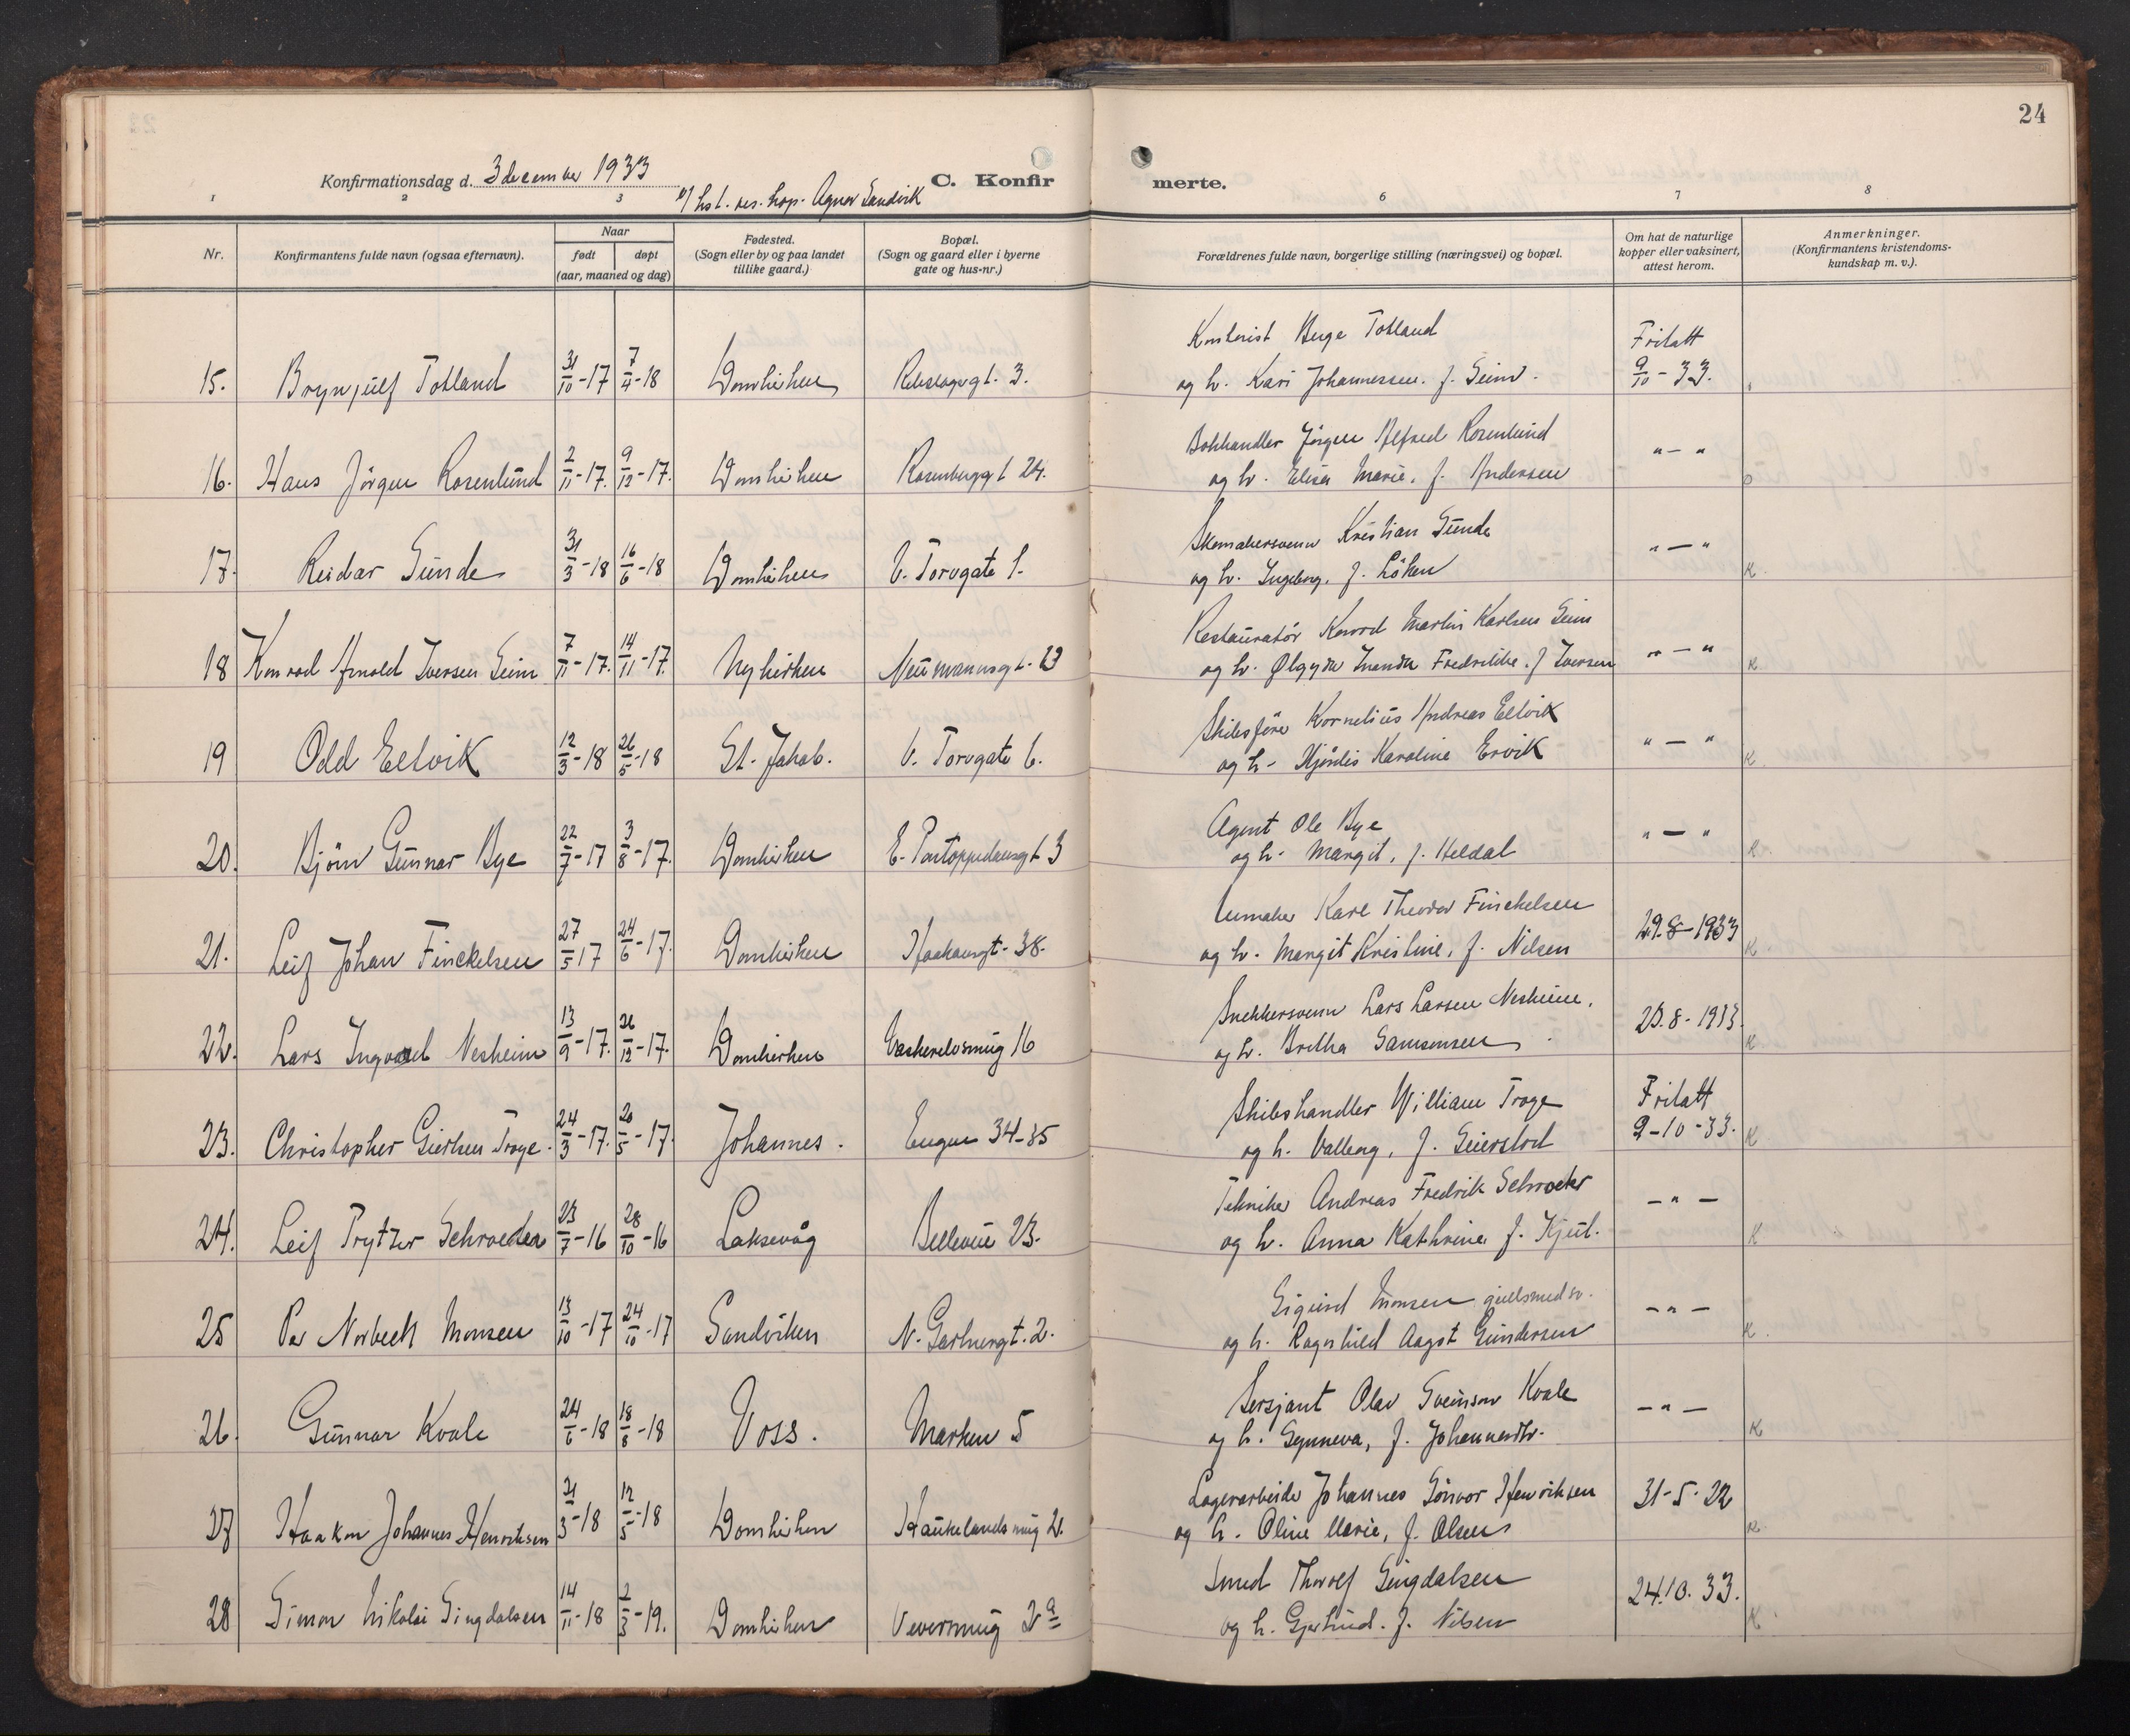 24
Konfirmationsdag d. 3 december 1933
C. Konfirmerte.
v/ kst. res. kap. Agnar Sandvik
1 2 3 6 7 8
Nr.
Konfirmantens fulde navn (ogsaa efternavn).
Naar
født døpt
(aar, maaned og dag)
Fødested.
(Sogn eller by og paa landet
tillike gaard.)
Bopæl.
(Sogn og gaard eller i byerne
gate og hus-nr.)
Forældrenes fulde navn, borgerlige stilling (næringsvei) og bopæl.
Om hat de naturlige
kopper eller vaksinert,
attest herom.
Anmerkninger.
(Konfirmantens kristendoms-
kundskap m. v.).
Kontorist Berge Totland
15. Brynjulf Totland 31/10-17 7/4-18 Domkirken Rebslagergt. 3.
og h. Kari Johannessen. f. Seim.
Fritatt
9/10-33.
Bokhandler Jörgen Alfred Rosenlund
16. Hans Jörgen Rosenlund 2/11-17. 9/12-17. Domkirken Rosenberggt 24.
og h. Elisa Marie, f. Andersen
"-"
Skomakersvenn Kristian Sunde
17. Reidar Sunde 31/3-18 16/6-18 Domkirken V. Torvgate 1.
og h. Ingeborg, f. Löken
"-" K.
Restauratör Konrad Martin Karlsen Seim
18 Konrad Arnold Iversen Seim 7/11-17. 14/11-17. Nykirken Neumannsgt. 23
og h. Fredrikke. f Iversen
"-" K
Skibsförer Kornelius Andreas Eltvik
19 Odd Eltvik 12/3-18 26/5-18 St. Jakob. V. Torvgate 6.
og h. Hjördis Karoline Ervik
"-" K.
Agent Ole Bye
20. Björn Gunnar Bye 22/7-17 3/8-17. Domkirken E. Pontoppidansgt 3
og h. Margit, f. Heldal
"-" K.
Urmaker Karl Theodor Finckelsen
21. Leif Johan Finckelsen 27/5 17 24/6-17. Domkirken Haakonsgt. 38.
og h. Margit Kristine, f. Nilsen
29.8-1933 K.
Snekkersvenn Lars Larsen Nesheim.
22. Lars Ingvald Nesheim 13/9-17. 26/12-17. Domkirken Vaskerelvsmug 16
og h. Britha Samsonsen
K.
Skibshandler William Troye
23. Christopher Giertsen Troye. 24/3-17. 20/5-17. Johannes. Engen 34-35
og h. Valborg, f.
Fritatt
9-10-33. K
Tekniker Andreas Fredrik Schroeder
24. Leif Prytzer Schroeder 23/7-16 28/10-16 Laksevåg Bellevue 23.
og h. Anna Kathrine f.
-"- K
Sigurd Monsen gullsmedsv.
25 Per Norbech Monsen 13/10-17 24/10-17 Sandviken N. Gartnergt. 2.
og h. Ragnhild Aagot Gundersen
-"- K.
Sersjant Olav Sveinson Kvale
26. Gunnar Kvale 24/6-18 18/8-18 Voss. Marken 5
og h. Synneva, f. Johannesdtr.
-"- K
Lagerarbeider Johannes Gunvor Henriksen
27 Haakon Johannes Henriksen 21/3-18 12/5-18 Domkirken Haukelandsmug 2.
og h. Oline Marie, f. Olsen
31-5-22 K.
Smed Thorolf Singdalsen
28 Simon Nikolai Singdalsen 14/11-18 2/3-19. Domkirken Vevermug 2a
og h. Gjertrud. f. Nilsen
24.10.33. K.